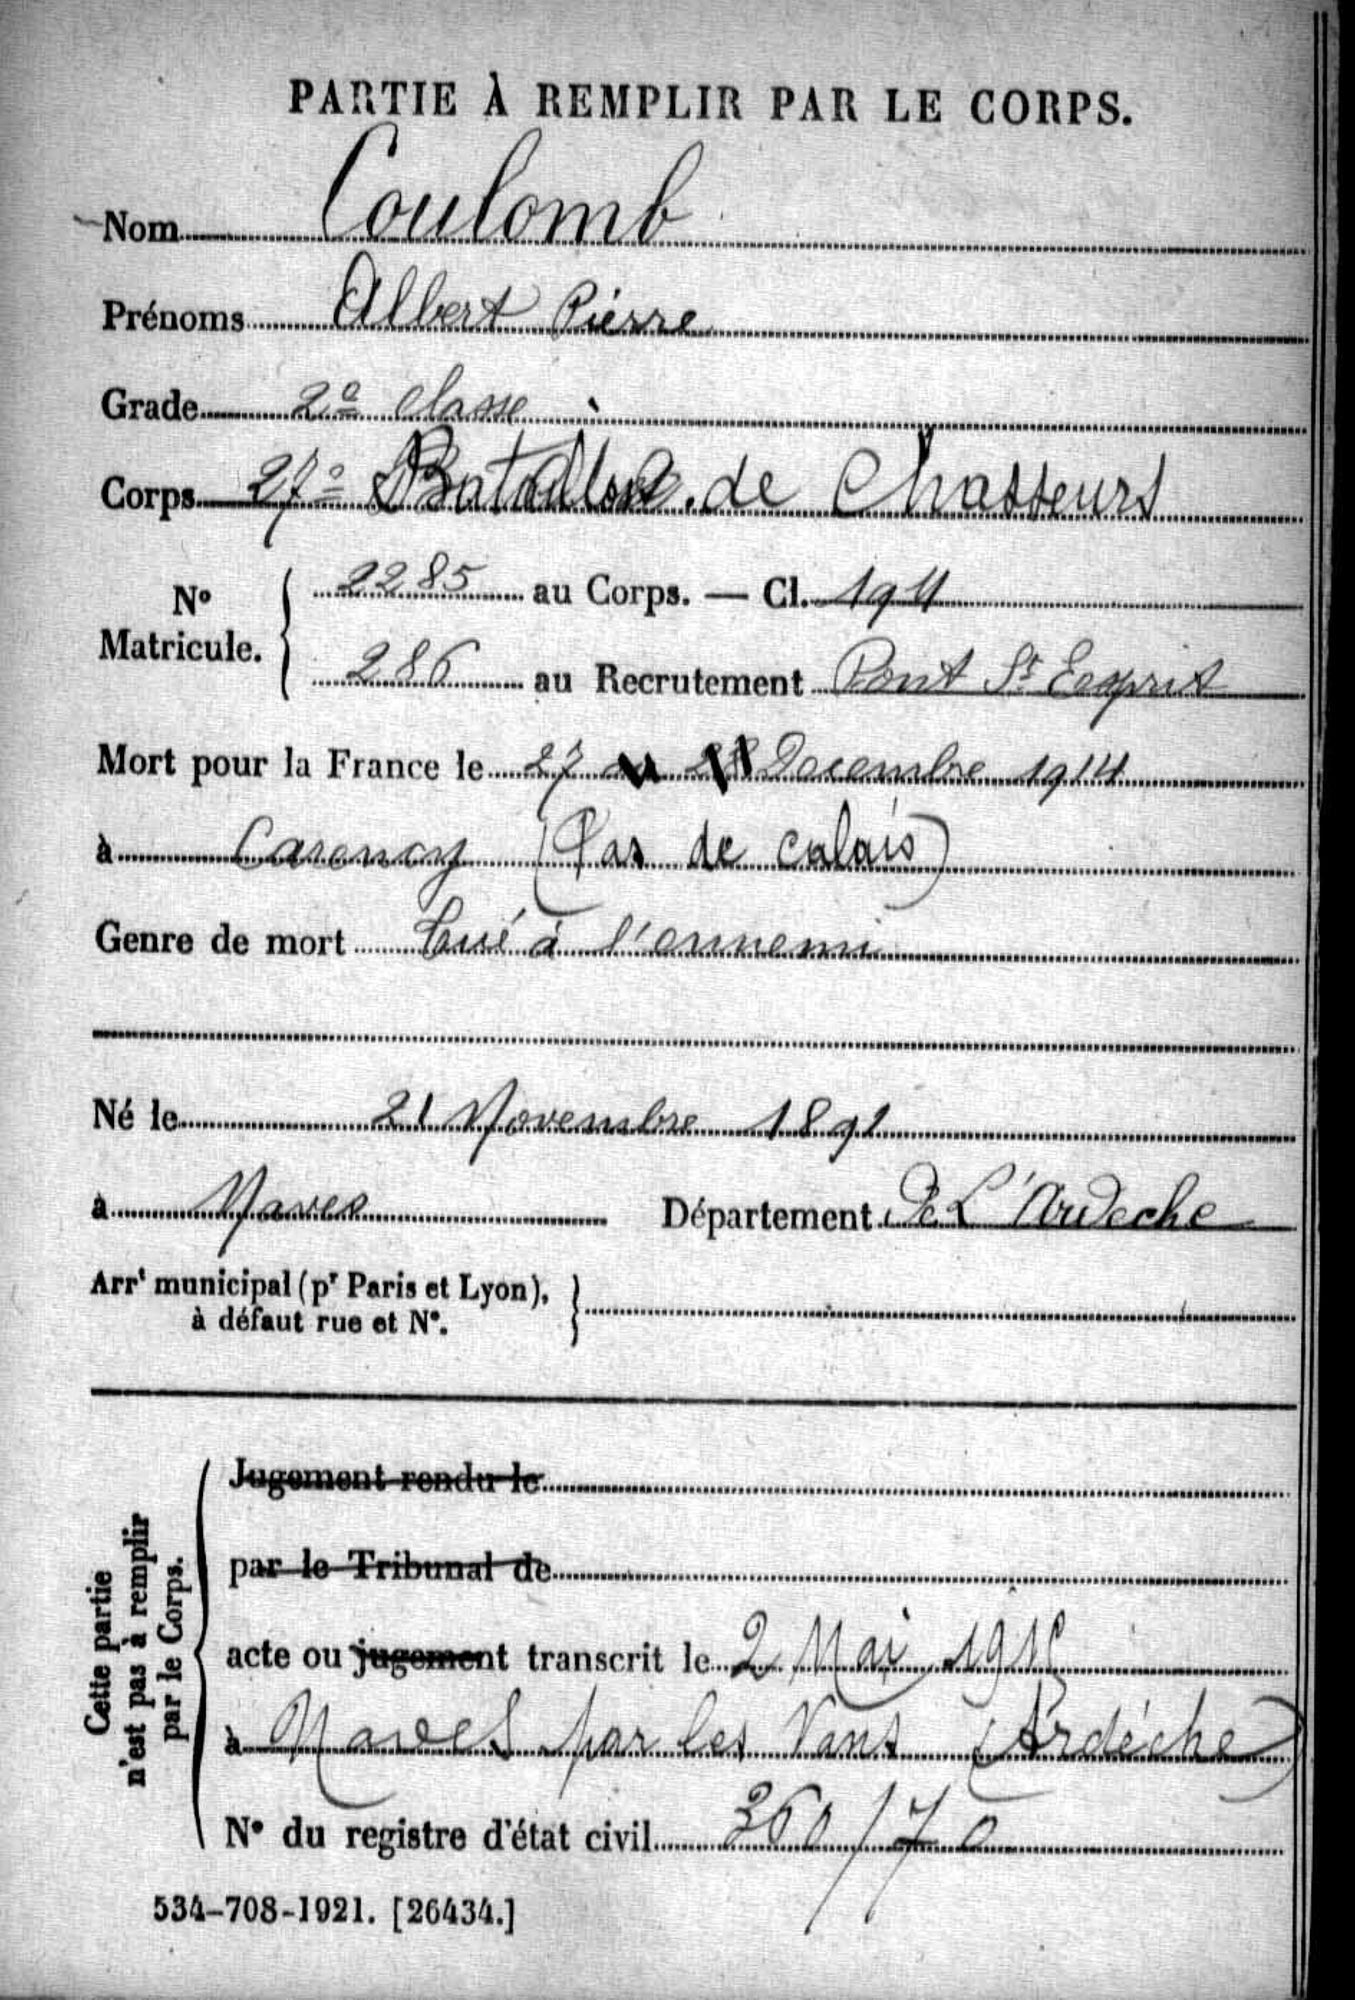 PARTIE À REMPLIR PAR LE CORPS.
Nom Coulomb
Prénoms Albert Pierre
Grade 2e classe
Corps 27e Bataillon de Chasseurs
No Matricule. 2285 au Corps. — Cl. 1911
286 au Recrutement Pont St Esprit
Mort pour la France le 27 au 28 Decembre 1914
à Carency (Pas de Calais)
Genre de mort Tué à l'ennemi
Né le 21 Novembre 1891
à Naves Département De L'Ardeche
Arrt municipal (pr Paris et Lyon),
à défaut rue et No.
Cette partie
n'est pas à remplir
par le Corps.
Jugement rendu le
par le Tribunal de
acte ou jugement transcrit le 2 Mai
à Naves par les Vans (Ardéche)
No du registre d'état civil 360/70
534-708-1921. [26434.]